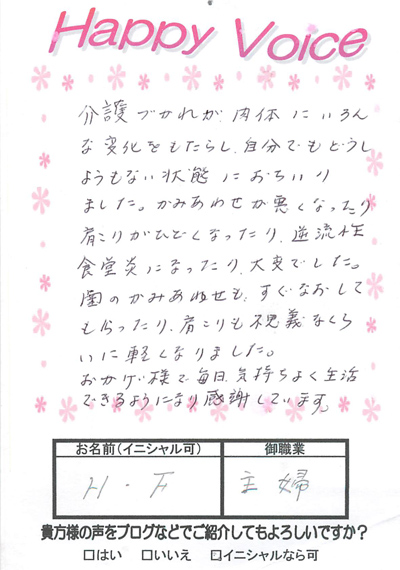 Happy Voice
介護づかれが、肉体にいろん
な変化をもたらし、自分でもどうし
ようもない状態におちいり
ました。かみあわせが悪くなったり
肩こりがひどくなったり、逆流性
食堂炎になったり、大変でした。
歯のかみあわせも、すぐなおして
もらったり、肩こりも不思議なくら
いに軽くなりました。
おかげ様で毎日、気持ちよく生活
できるようになり感謝しています。
お名前(イニシャル可) 御職業
H・F 主婦
貴方様の声をブログなどでご紹介してもよろしいですか?
□はい □いいえ □イニシャルなら可